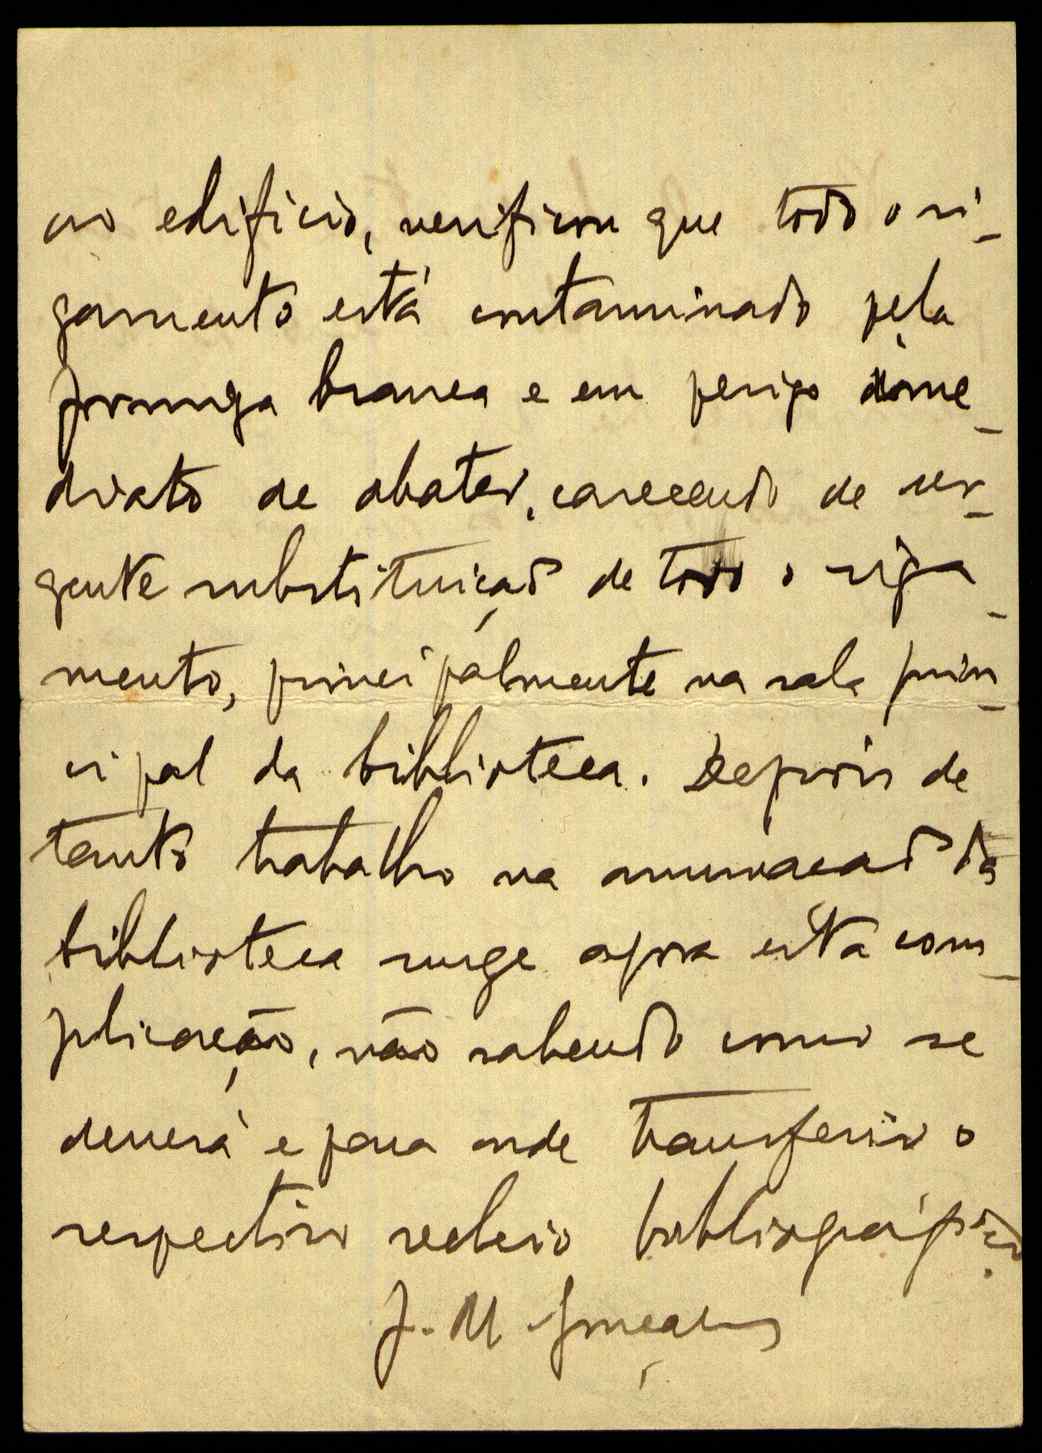 no edifício, verificou que todo o vi-
gamento está contaminado pela
formiga branca e em perigo ime-
diato de abater, carecendo de ur-
gente substituiçaõ de todo o viga-
mento, principalmente na sala prin-
cipal da biblioteca. Depois de
tanto trabalho na arrumacaõ da
biblioteca surge agora esta com-
plicação, não sabendo como se
deverá e para onde transferir o
respectivo recheio bibliográfico.
J. M. Gonçalves